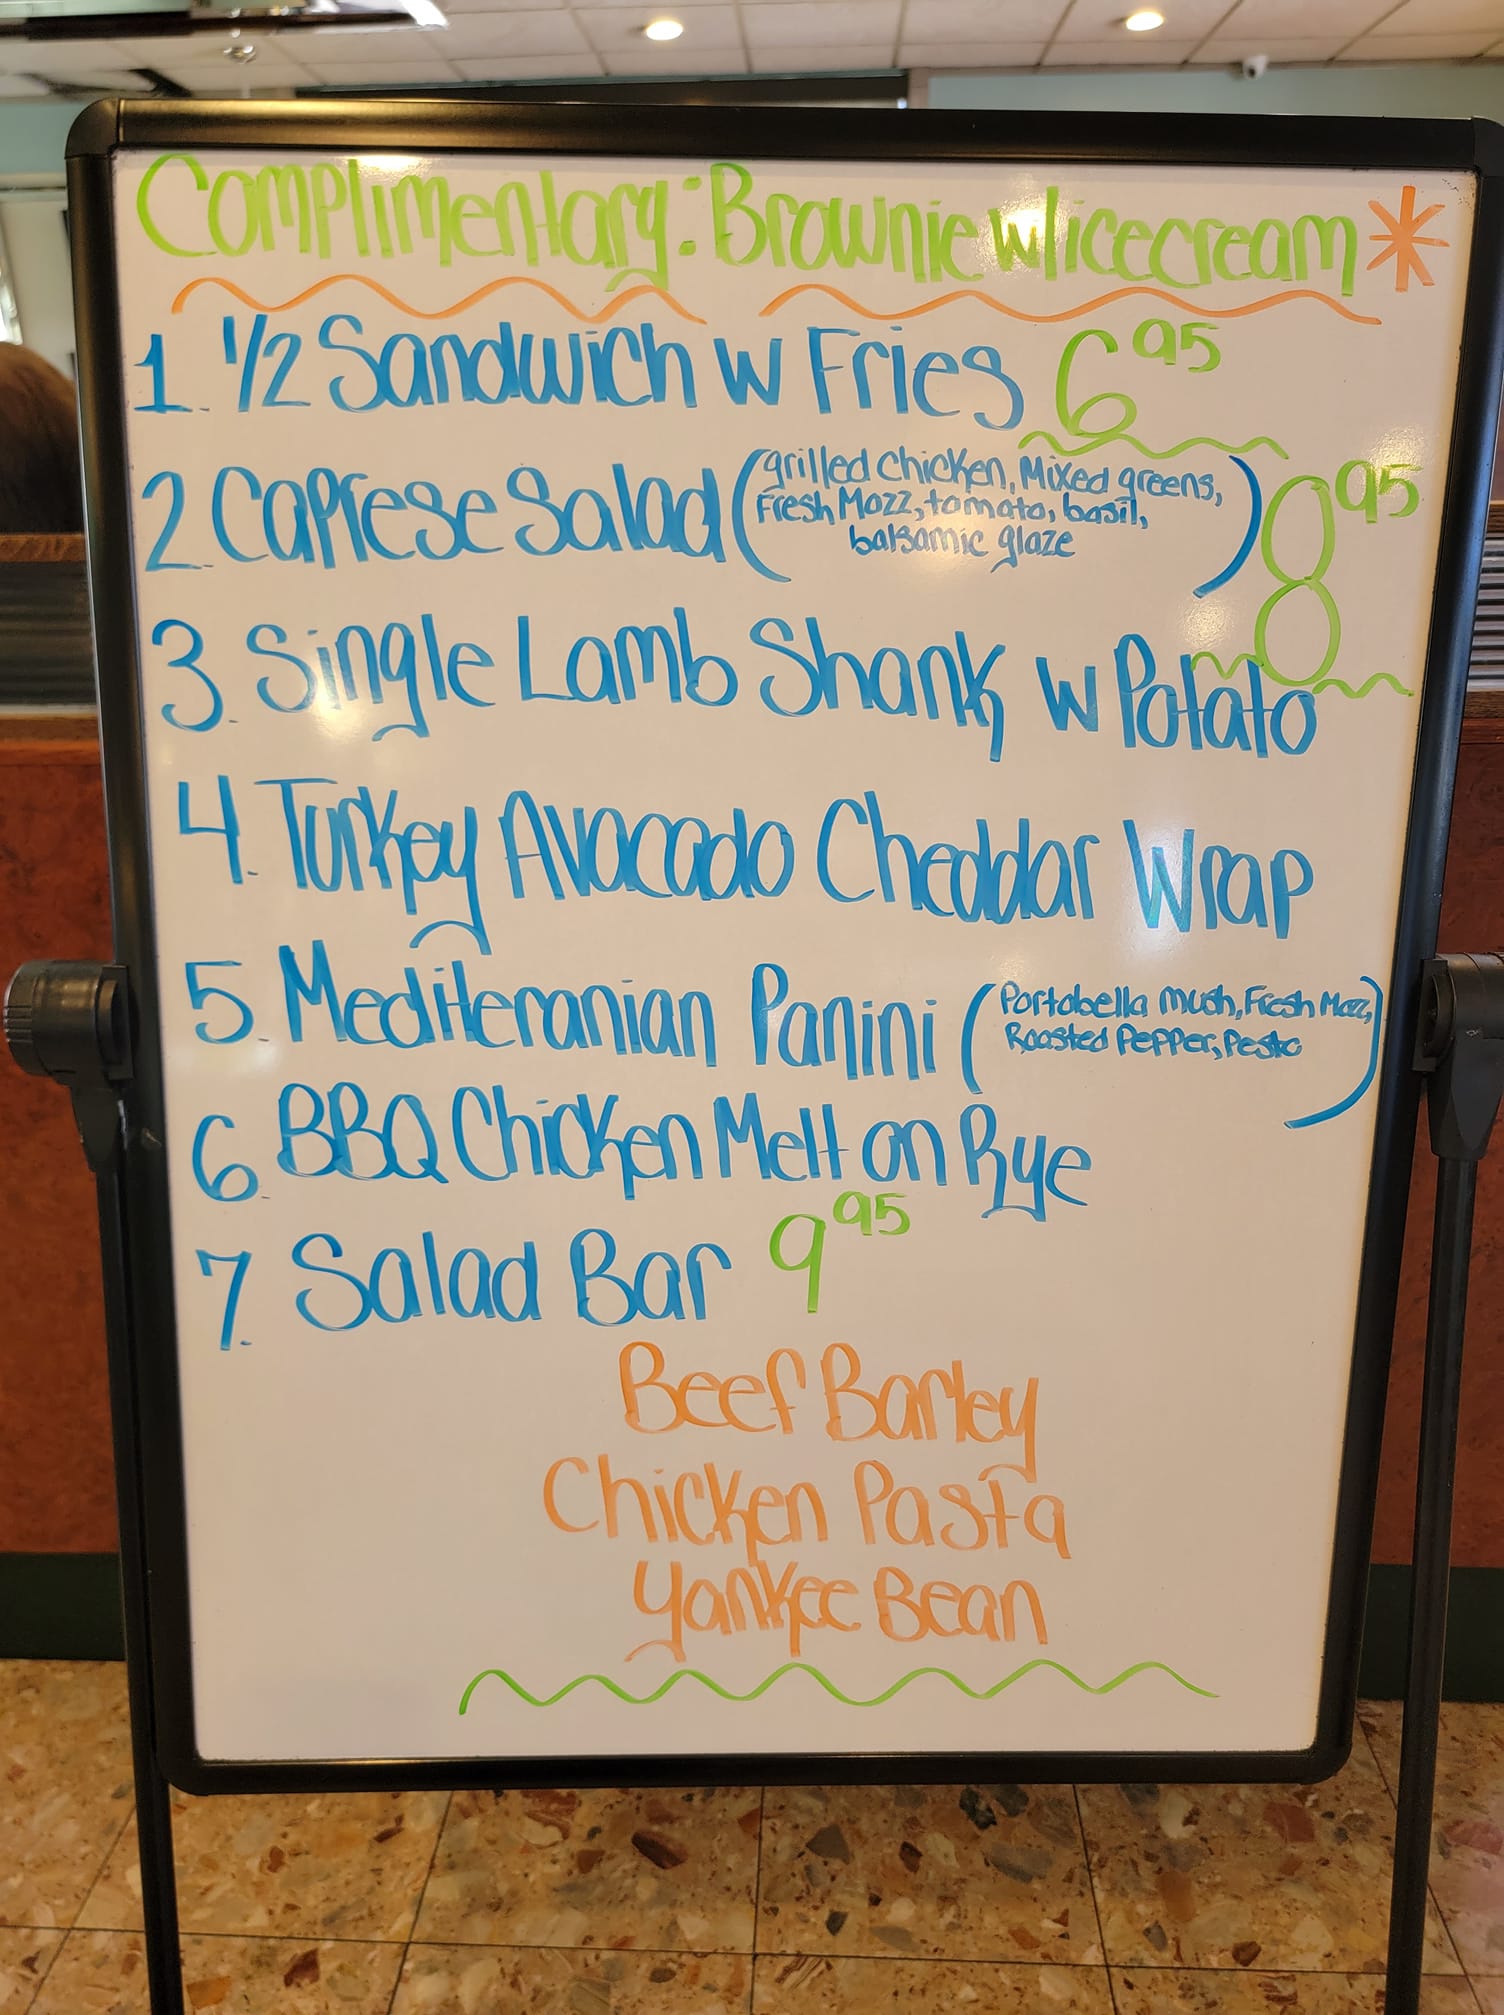 Complimentary: Brownie w/ icecream *
1. 1/2 Sandwich w Fries 6 95
2. Caprese Salad (grilled chicken, Mixed greens,
Fresh Mozz, tomato, basil,
balsamic glaze) 8 95
3. Single Lamb Shank w Potato
4. Turkey Avacado Cheddar Wrap
5. Mediteranian Panini (Portabella mush, Fresh Mozz,
Roasted Pepper, Pesto)
6. BBQ Chicken Melt on Rye
7. Salad Bar 9 95
Beef Barley
Chicken Pasta
Yankee Bean